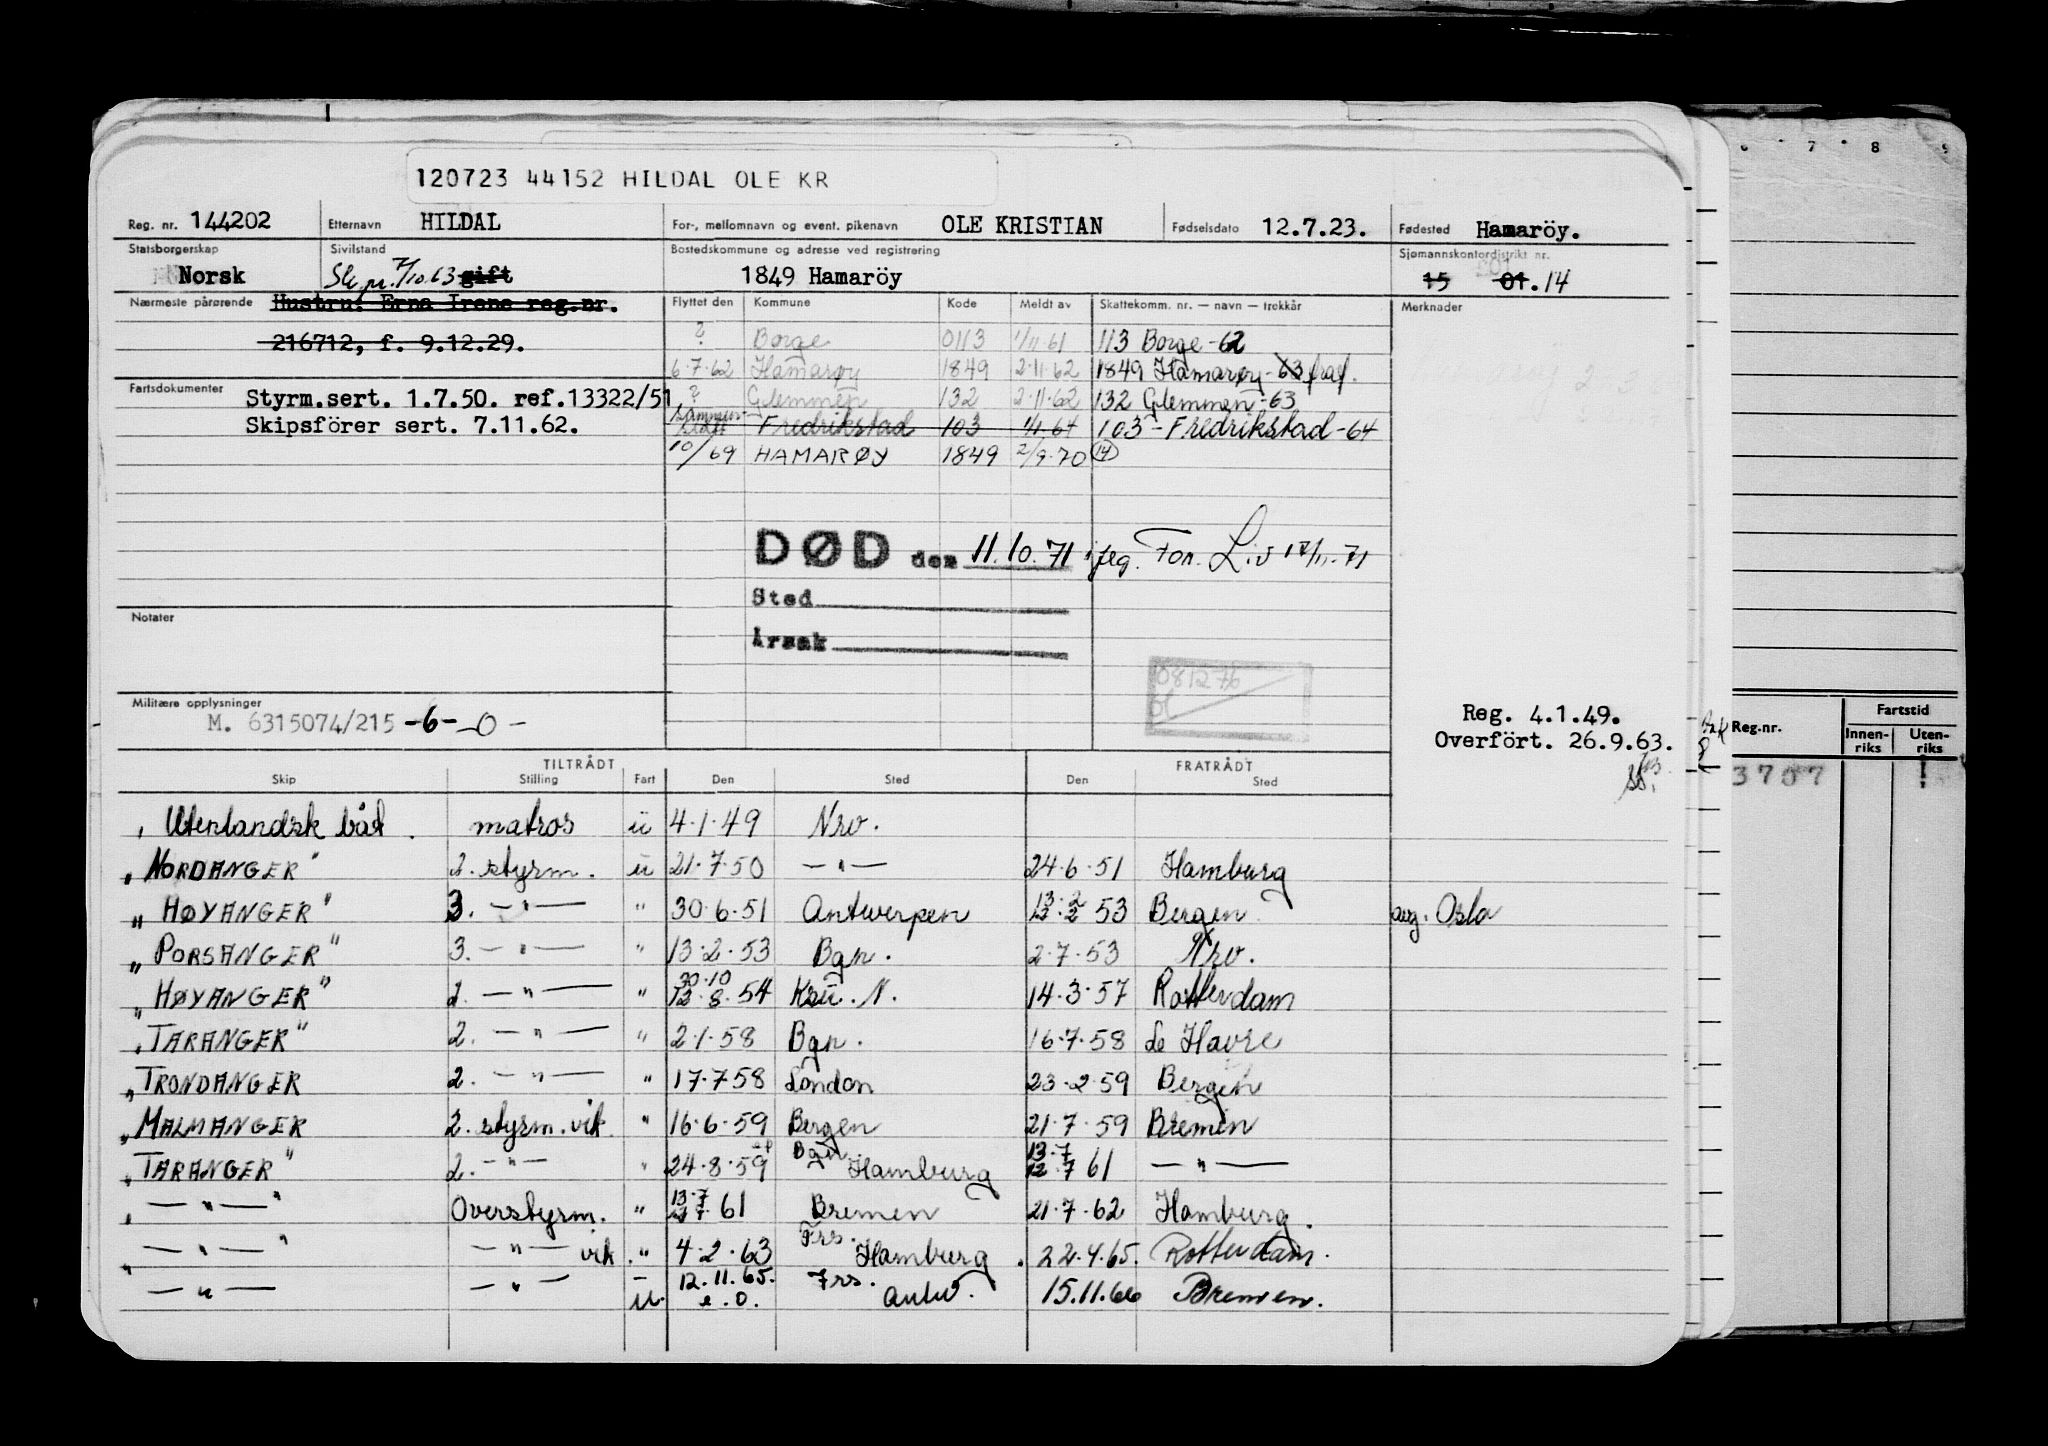 120723 44152 HILDAL OLE KR
Reg. nr. 144202 Etternavn HILDAL For-, mellomnavn og event. pikenavn OLE KRISTIAN Fødselsdato 12.7.23. Fødested Hamaröy.
Statsborgerskap Sivilstand Bostedskommune og adresse ved registrering Sjømannskontordistrikt nr.
Norsk 7/10.63 gift 1849 Hamaröy 15 01. 14
Nærmeste pårørende Hustru: Erna Irene reg.nr. Flyttet den Kommune Kode Meldt av Skattekomm. nr. — navn — trekkår Merknader
216712, f. 9.12.29. ? Borge 0113 1/11-61 113 Borge-62
6.7.62 Hamarøy 1849 2.11.62 1849 Hamarøy-63 fraf.
Fartsdokumenter Styrm.sert. 1.7.50. ref.13322/51. ? Glemmen 132 2.11.62 132 Glemmen-63
Skipsförer sert. 7.11.62. Fredrikstad 103 1/1.64 103-Fredrikstad-64
10/69 HAMARØY 1849 2/9.70 14
DØD den 11.10.71
Sted
Årsak
Notater
081276
Militære opplysninger
M. 6315074/215-6- -0-
Reg. 4.1.49.
Overfört. 26.9.63.
TILTRÅDT FRATRÅDT
Skip Stilling Fart Den Sted Den Sted
Utenlandsk båt. matros ü 4.1.49 Nrv.
"NORDANGER" 2. styrm. ü 21.7.50 — " — 24.6.51 Hamburg
"HØYANGER" 3. — " — " 30.6.51 Antwerpen 13.2 12.2 53 Bergen avg. Oslo
"PORSANGER" 3. — " — " 13.2.53 Bgn. 2.7.53 Nrv.
"HØYANGER" 2. — " — " 30.10 12.8.54 Ksu. N. 14.3.57 Rotterdam
"TARANGER" 2. — " — " 2.1.58 Bgn. 16.7.58 Le Havre
"TRONDANGER 2. — " — " 17.7.58 London 23.2.59 Bergen
"MALMANGER 2. styrm. vik. " 16.6.59 Bergen 21.7.59 Bremen
"TARANGER" 2. — " — " 24.8.59 Bgn. Hamburg 13.7 12.7 61 — " —
— " — " Overstyrm. " 13.7 61 Bremen 21.7.62 Hamburg.
— " — " — " — vik. " 4.2.63 Frs. Hamburg. 22.4.65. Rotterdam.
— " — — " — ü. 12.11.65. e.o. Frs. Antw. 15.11.66 Bremen.
6 7 8 9
Reg.nr. Fartstid
Innenriks Utenriks
3707